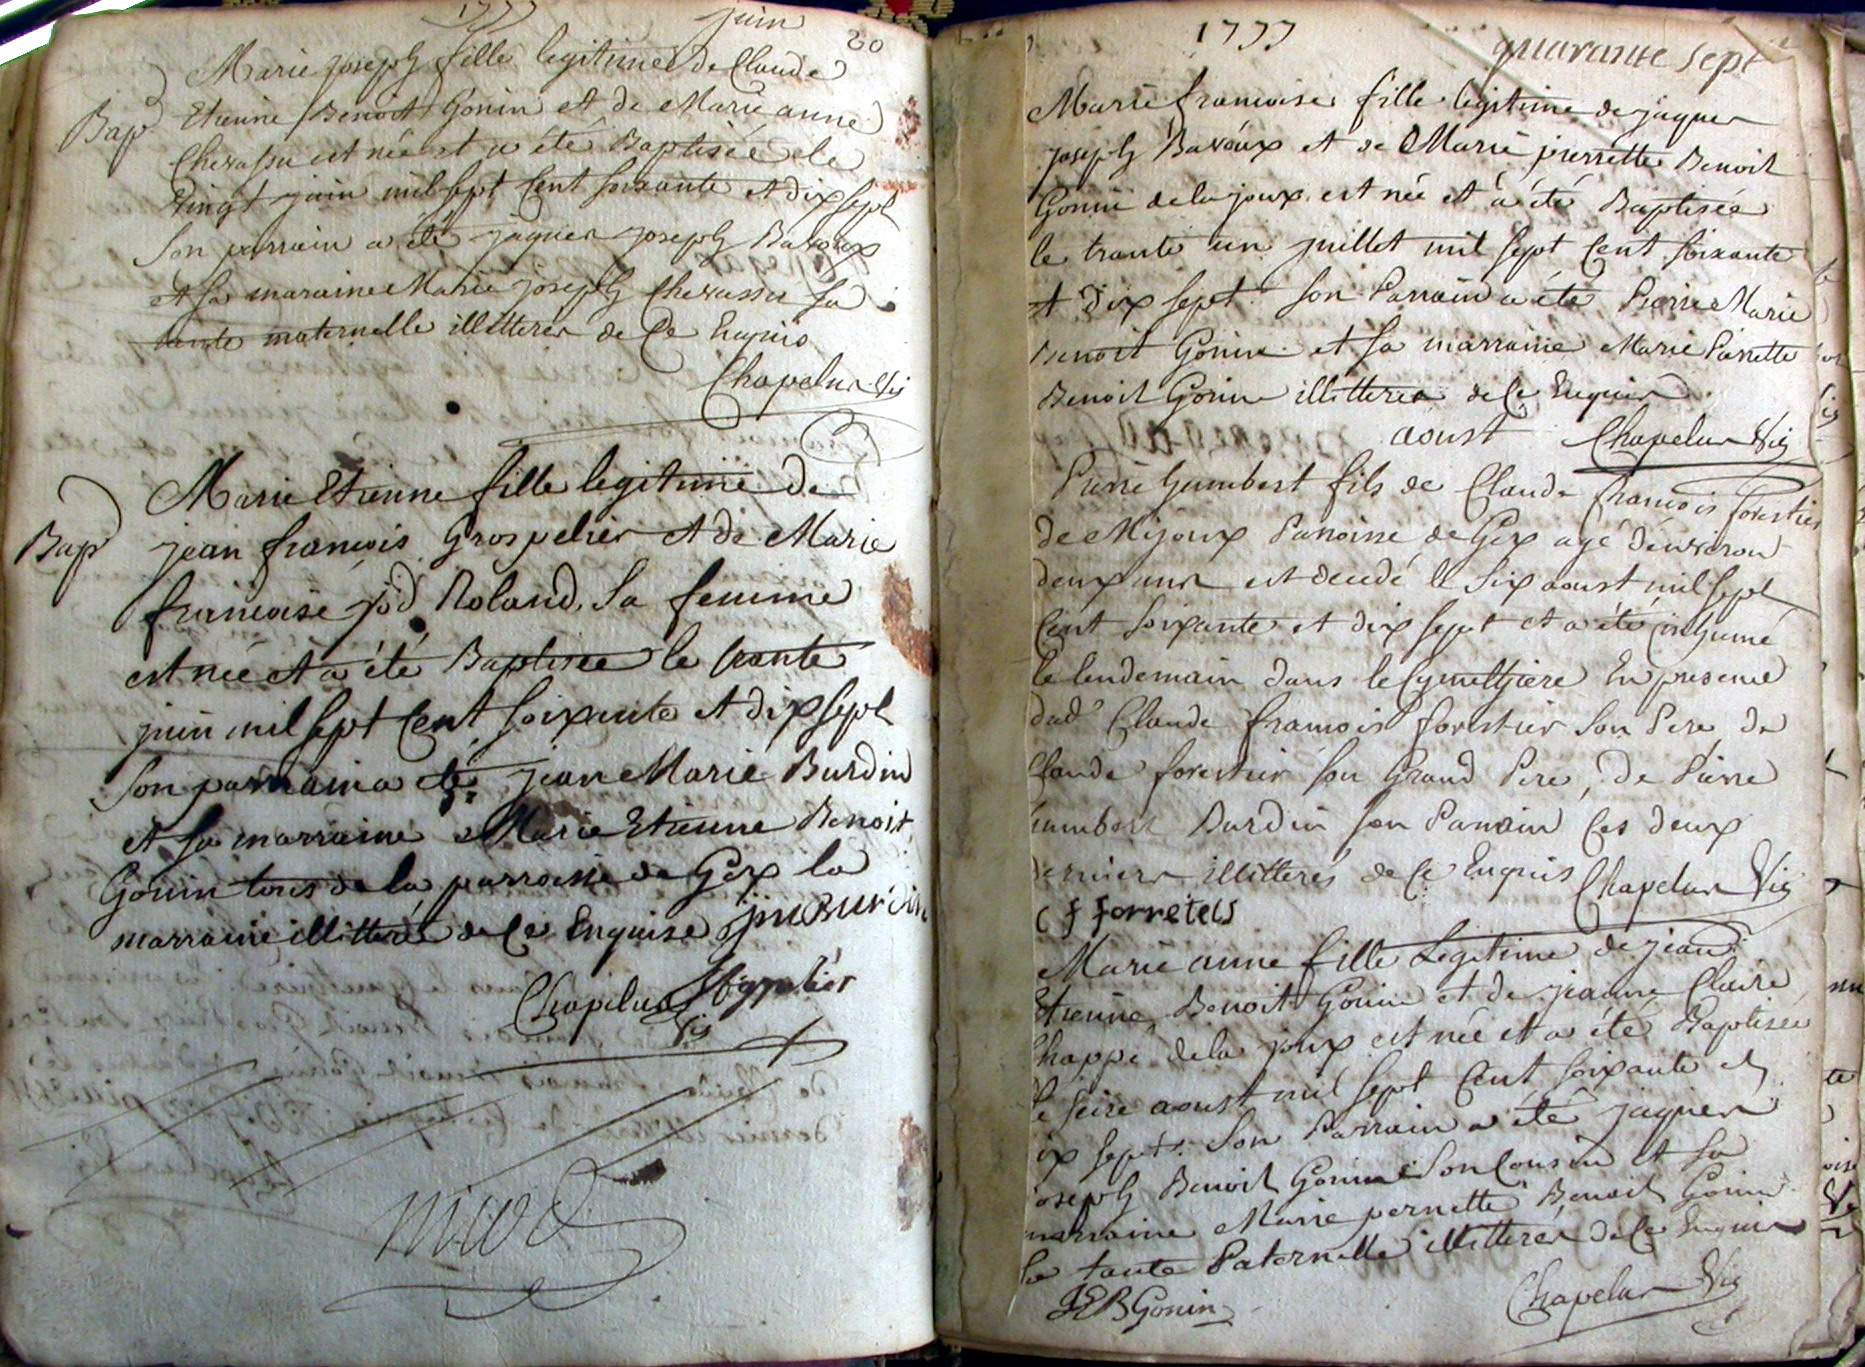 1777 juin
20
Marie joseph fille legitime de Claude
Bap Etienne Benoit Gonin et de Marie anne
Chevassu est née et a été Baptisée le
Vingt juin mil sept Cent soixante et dix sept
Son parrain a été jaques joseph Bavoux
et sa maraine Marie joseph Chevassu sa
tante maternelle illitteres de Ce Enquis
Chapelus Vic
Marie Etienne fille legitime de
Bap jean françois Grospelier et de Marie
francoise jod Roland, sa femme
est née et a été Baptisée le trante
juin mil sept Cent soixante et dix sept
Son parrain a été jean Marie Burdin
et sa marraine Marie Etienne Benoit
Gonin tous de la parroisse de Gex la
marraine illitterée de Ce Enquise jm Burdin
Chapelus
Vic
1777
quarante sept
Marie francoise fille legitime de jaques
joseph Bavoux et de Marie pierrette Benoit
Gonin de la joux est née et a été Baptisée
le trante un juillet mil sept Cent soixante
et dix sept Son Parrain a été Pierre Marie
Benoit Gonin et sa marraine Marie Parrette
Benoit Gonin illitteres de Ce Enquis
aoust Chapelus Vic
Pierre humbert fils de Claude francois forestier
de Mijoux Paroisse de Gex agé d'envoron
deux ans est decedé le six aoust mil sept
Cent soixante et dix sept et a été inhumé
le lendemain dans le Cymethiere En presence
dud Claude francois forestier son Pere de
Claude forestier son Grand Pere, de Pierre
humbert Burdin son Parrain Ces deux
derniers illitterés de Ce Enquis Chapelus Vic
c f forretets
Marie anne fille Legitime de jean
Etienne Benoit Gonin et de jeanne Claire
Chappé de la joux est née et a été Baptisée
le seize aoust mil sept Cent soixante et
ix sept. Son Parrain a été jaques
joseph Benoit Gonin son Cousin et sa
marraine Marie pernette Benoit Gonin
Sa tante Paternelle illitteres de Ce Enquis
JEB Gonin Chapelus Vic